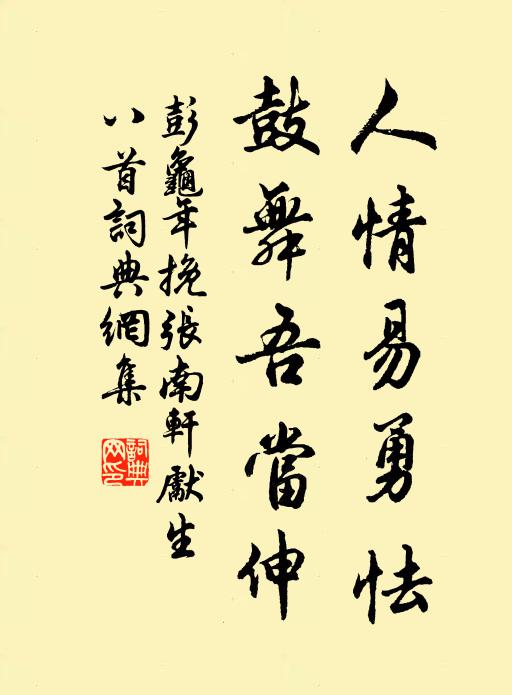 人情易勇怯
鼓舞吾當伸
彭龜年挽張南軒獻生
八首詞典網集
詞典
网印